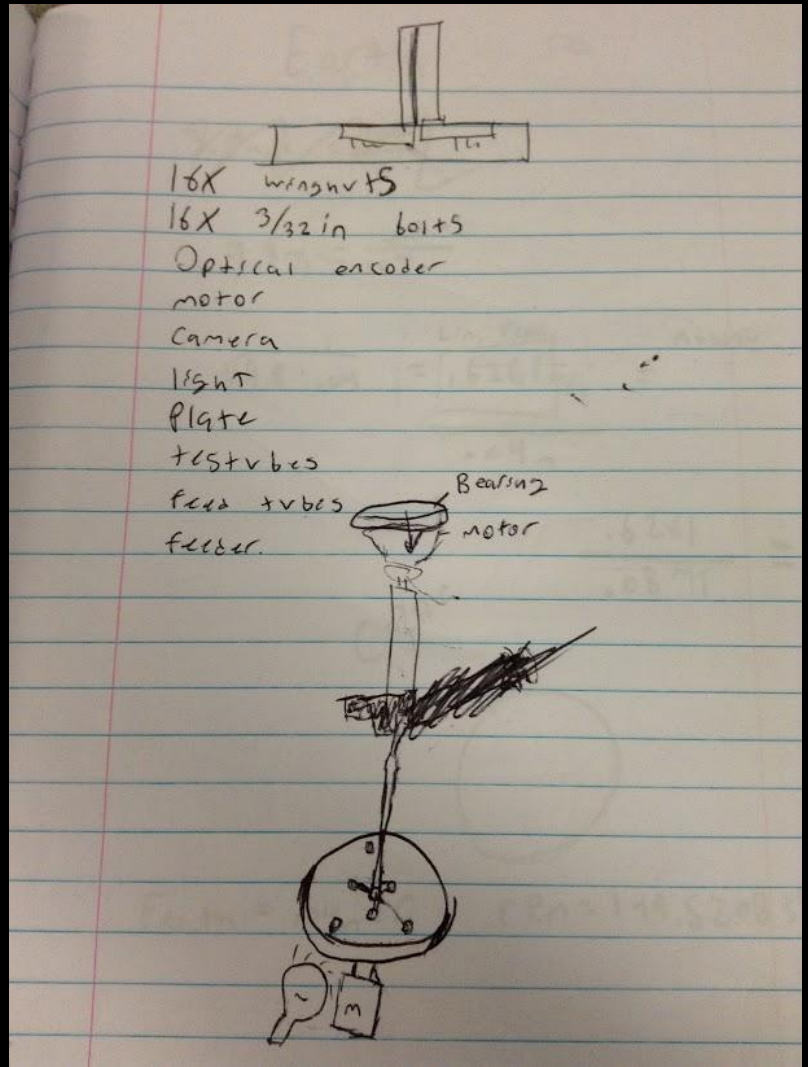 16X wingnuts
16X 3/32 in bolts
Optical encoder
motor
Camera
light
Plate
testubes
feed tubes
feeder.
Bearing
motor
M